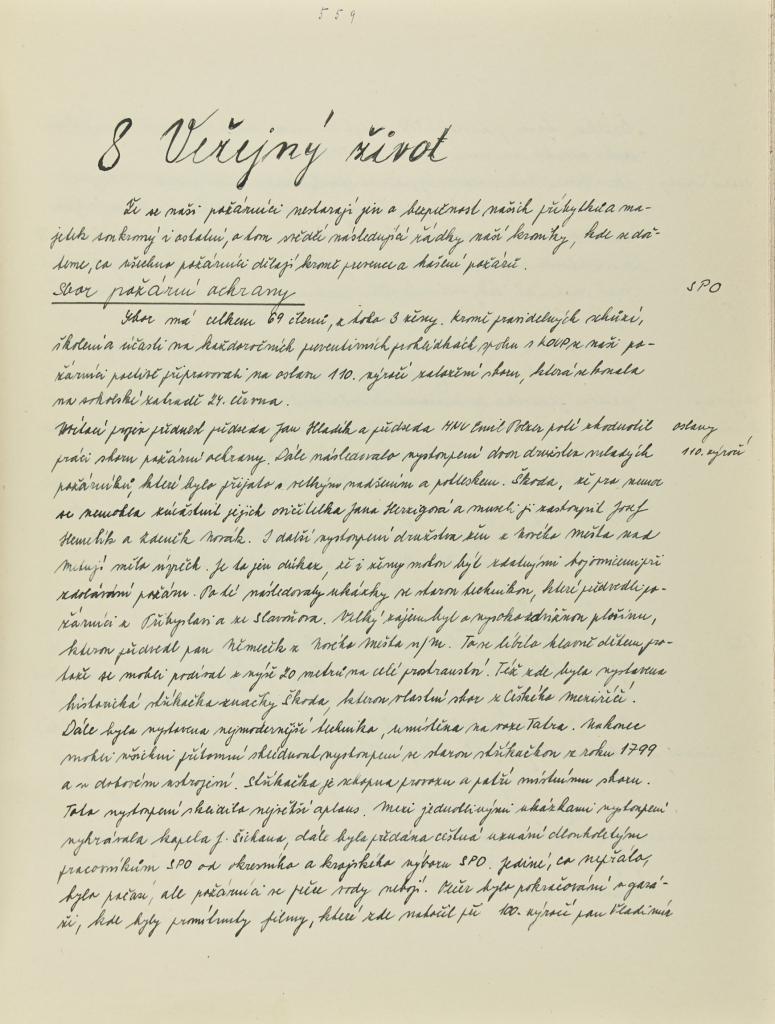 559
8 Veřejný život
Že se naši požárníci nestarají jen o bezpečnost našich příbytků a ma-
jetek soukromý i ostatní, o tom svědčí následující řádky naší kroniky, kde se doč-
teme, co všechno požárníci dělají kromě prevence a hašení požárů.
Sbor požární ochrany
SPO
Sbor má celkem 69 členů, z toho 3 ženy. Kromě pravidelných schůzí,
školení a účasti na každoročních preventivních prohlídkách spolu s se naši po-
žárníci poctivě připravovali na oslavu 110. výročí založení sboru, která se konala
na sokolské zahradě 24. června.
Uvítací projev přednesl předseda Jan Hladík a předseda MNV Emil Polzer poté zhodnotil
oslavy
práci sboru požární ochrany. Dále následovalo vystoupení dvou družstev mladých
110. výročí
požárníků, které bylo přijato s velkým nadšením a potleskem. Škoda, že pro nemoc
se nemohla zúčastnit jejich cvičitelka Jana Herzigová a museli ji zastoupit Josef
a Zdeněk Novák. I další vystoupení družstva žen z Nového Města nad
Metují mělo úspěch. Je to jen důkaz, že i ženy mohou být zdatnými bojovnicemi při
zdolávání požáru. Poté následovaly ukázky se starou technikou, které předvedli po-
žárníci z Přibyslavi a ze Slavoňova. Velký zájem byl o vysokozdvižnou plošinu,
kterou předvedl pan Němeček z Nového Města n/M. To se líbilo hlavně dětem, pro-
tože se mohli podívat z výše 20 metrů na celé prostranství. Též zde byla vystavena
historická stříkačka značky Škoda, kterou vlastní sbor z Českého Meziříčí.
Dále byla vystavena nejmodernější technika, umístěna na voze Tatra. Nakonec
mohli všichni přítomní shlédnout vystoupení se starou stříkačkou z roku 1799
a v dobovém ustrojení. Stříkačka je schopna provozu a patří místnímu sboru.
Toto vystoupení sklidilo největší aplaus. Mezi jednotlivými ukázkami vystoupení
vyhrávala kapela J. Šichana, dále byla předána čestná uznání dlouholetým
pracovníkům SPO od okresního a krajského výboru SPO. Jediné, co nepřálo,
bylo počasí, ale požárníci se přece vody nebojí. Večer bylo pokračování v gará-
ži, kde byly promítnuty filmy, které zde natočil při 100. výročí pan Vladimír